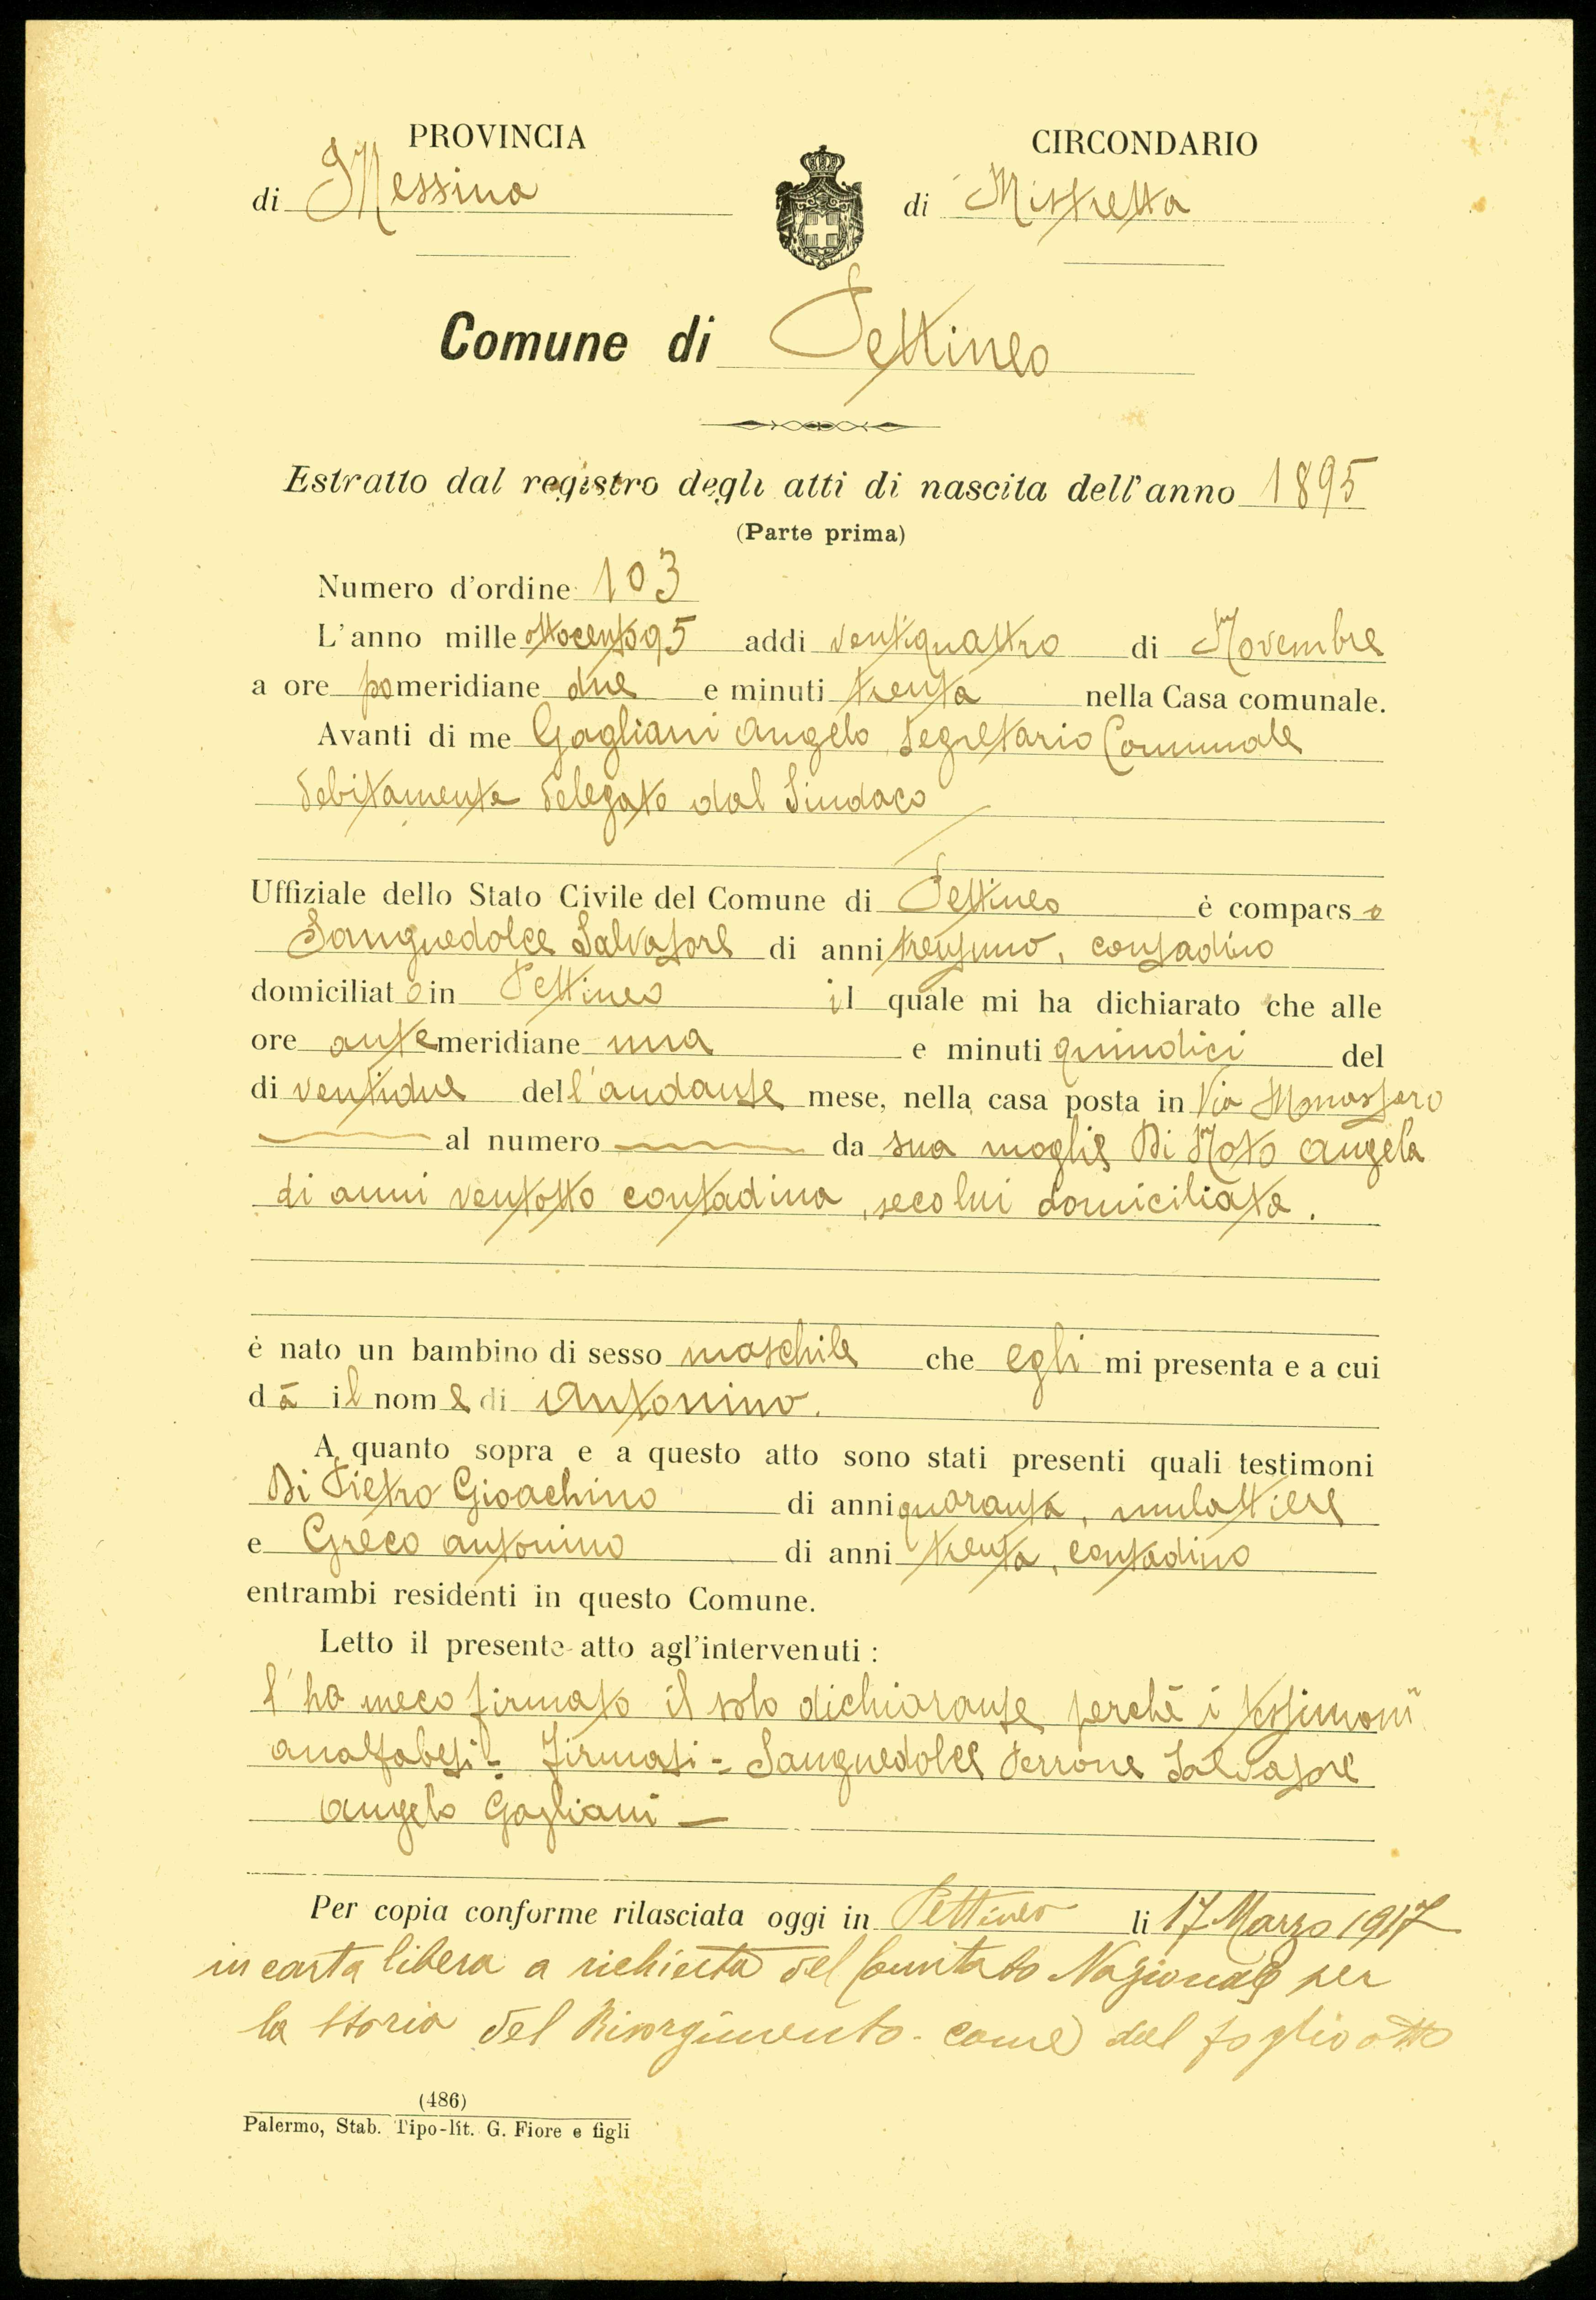 PROVINCIA
di Messina
CIRCONDARIO
di Mistretta
Comune di Pettineo
Estratto dal registro degli atti di nascita dell'anno 1895
(Parte prima)
Numero d'ordine 103
L'anno mille ottocento95 addi ventiquattro di Novembre
a ore pomeridiane due e minuti trenta nella Casa comunale.
Avanti di me Gagliani Angelo Segretario Comunale
debitamente delegato dal Sindaco
Uffiziale dello Stato Civile del Comune di Pettineo è comparso
Sanguedolce Salvatore di anni trentuno, contadino
domiciliato in Pettineo il quale mi ha dichiarato che alle
ore antemeridiane una e minuti quindici del
di ventidue dell'andante mese, nella casa posta in Via
al numero da sua moglie Di Noto Angela
di anni ventotto contadina, seco lui domiciliata.
è nato un bambino di sesso maschile che egli mi presenta e a cui
dà il nome di Antonino.
A quanto sopra e a questo atto sono stati presenti quali testimoni
Di Pietro Gioachino di anni quaranta, mulattiere
e Greco Antonino di anni trenta, contadino
entrambi residenti in questo Comune.
Letto il presente atto agl'intervenuti:
l'ha meco firmato il solo dichiarante perchè i testimoni
analfabeti = Firmati = Sanguedolce Perrone Salvatore
Angelo Gagliani —
Per copia conforme rilasciata oggi in Pettineo li 17 Marzo 1917
in carta libera a richiesta del Comitato Nazionale per
la Storia del Risorgimento - come dal foglio otto
(486)
Palermo, Stab. Tipo-lit. G. Fiore e figli